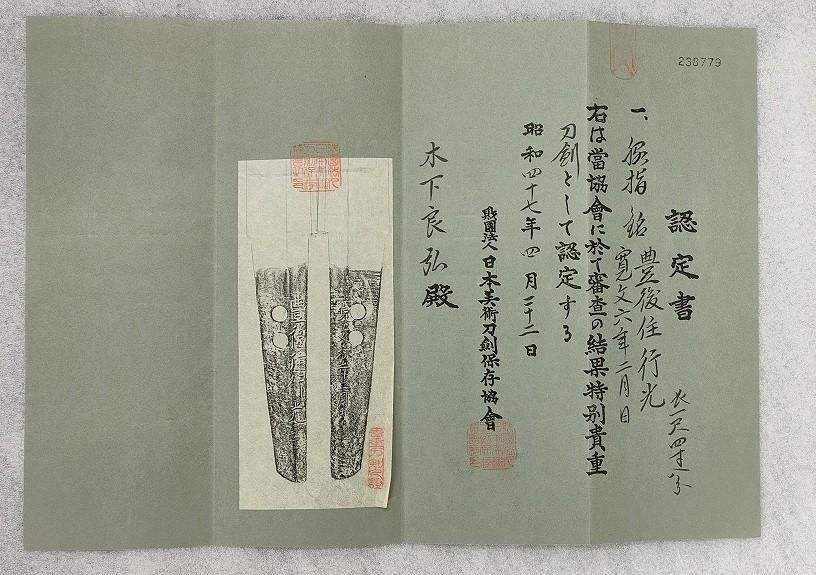 238779
認定書
一、脇指 銘 豊後住行光
寛文六年二月日
長一尺四寸五分
右は當協會に於て審査の結果特別貴重
刀劍として認定する
昭和四十七年四月二十二日
財團法人日本美術刀劍保存協會
木下良弘殿
豊後住行光
寛文六年二月日